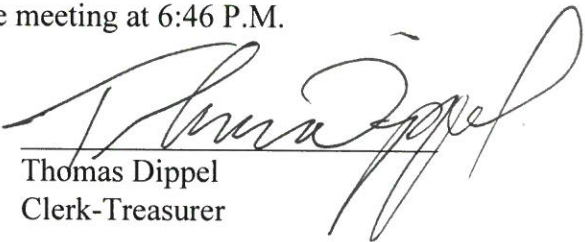 e meeting at 6:46 P.M.
Thomas Dippel
Thomas Dippel
Clerk-Treasurer